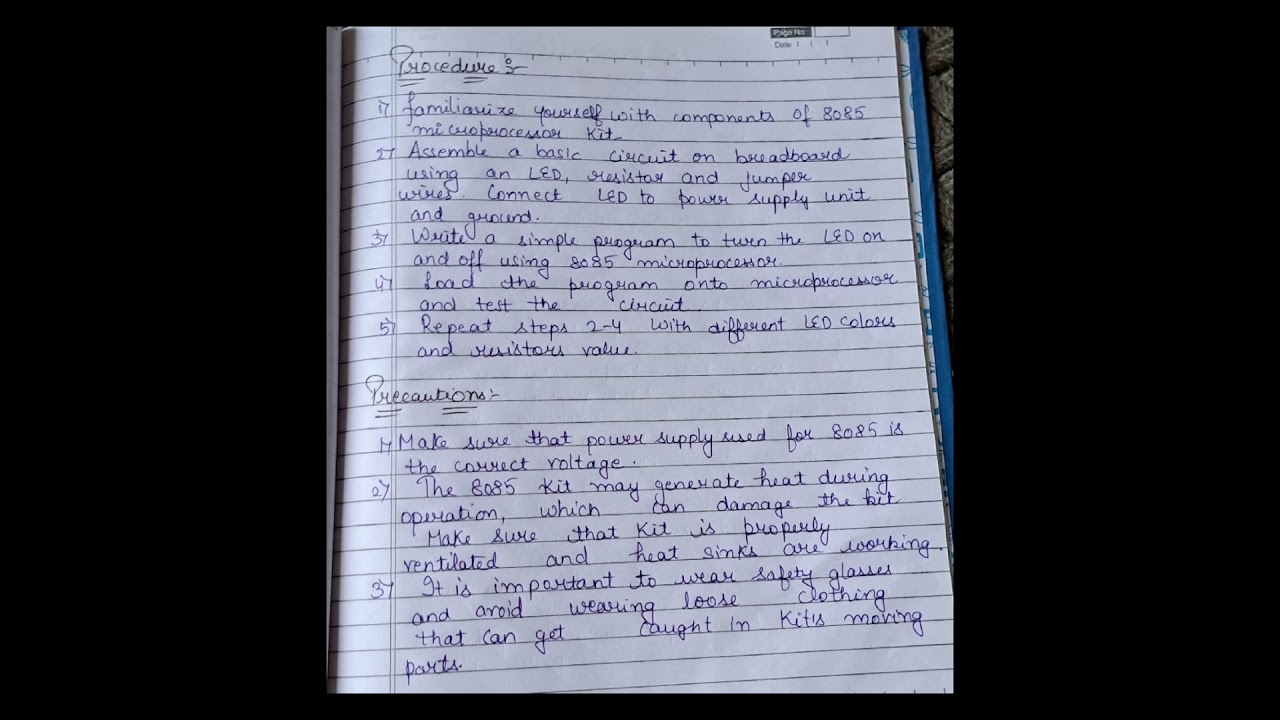 Page No.
Date
Procedure :-
1) familiarize yourself with components of 8085
microprocessor Kit.
2) Assemble a basic circuit on breadboard
using an LED, resistor and jumper
wires. Connect LED to power supply unit
and ground.
3) Write a simple program to turn the LED on
and off using 8085 microprocessor.
4) Load the program onto microprocessor
and test the circuit.
5) Repeat steps 2-4 with different LED colors
and resistors value.
Precautions:-
1) Make sure that power supply used for 8085 is
the correct voltage.
2) The 8085 Kit may generate heat during
operation, which can damage the kit
Make sure that Kit is properly
ventilated and heat sinks are working.
3) It is important to wear safety glasses
and avoid wearing loose clothing
that can get caught in Kit's moving
parts.